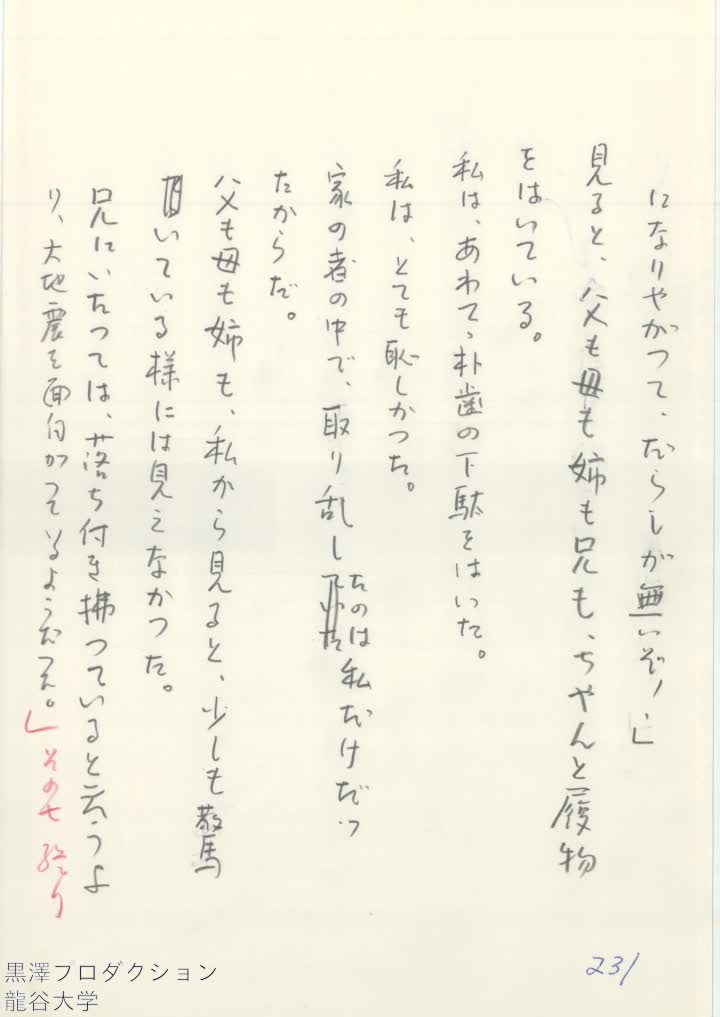 になりやがつて、だらしが無いぞ！」
見ると、父も母も姉も兄も、ちやんと履物
をはいている。
私は、あわてゝ朴歯の下駄をはいた。
私は、とても恥しかつた。
家の者の中で、取り乱したのは私だけだつ
たからだ。
父も母も姉も、私から見ると、少しも驚
いている様には見えなかつた。
兄にいたつては、落ち付き拂つていると云うよ
り、大地震を面白がつているようだつた。」その七 終り
231
黒澤プロダクション
龍谷大学